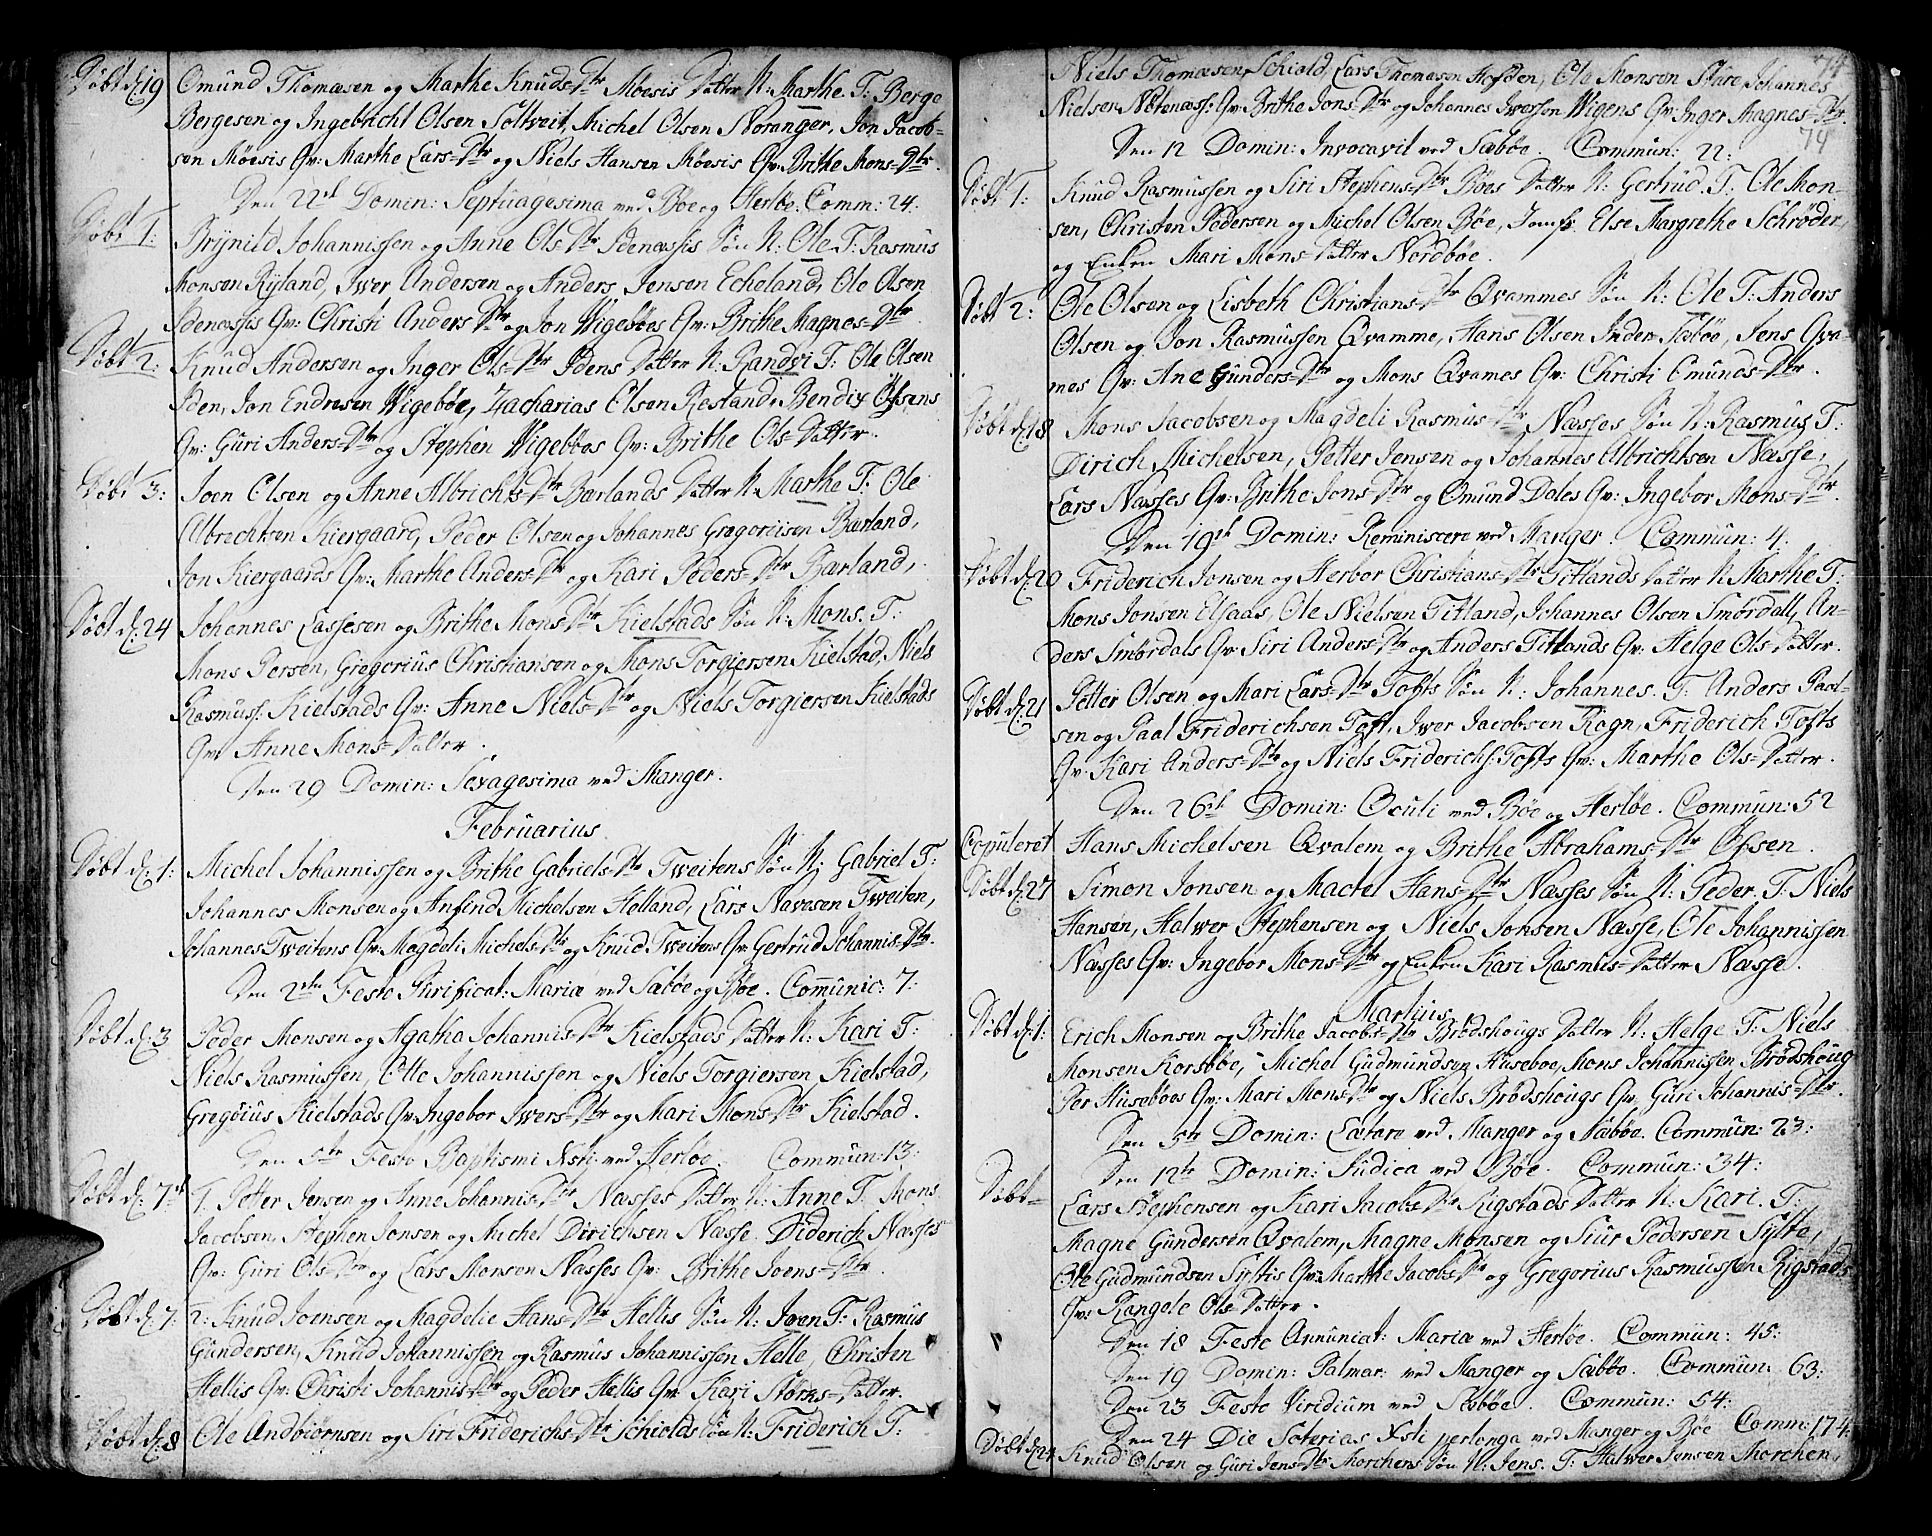 Döbt d: 19 Omund Thomæsen og Marthe Knuds=Dtr Möesis Datter N: Marthe. T: Berge
Bergesen og Ingebricht Olsen Soltveit, Michel Olsen Noranger, Jon Jacob-
sen Möesis Qv: Marthe Lars=Dtr og Niels Hansen Möesis Qv: Brithe Mons=Dtr.
Den 22de Domin: Septuagesima ved Böe og Herlöe. Comm: 24.
Döbt 1: Brÿnild Johannissen og Anne Ols=Dtr Idenæssis Sön N: Ole T: Rasmus
Monsen Rÿland, Iwer Andersen og Anders Jensen Echeland, Ole Olsen
Idenæssis Qv: Christi Anders=Dtr og Jon Wigeböes Qv: Brithe Magnes=Dtr.
Döbt 2: Knud Andersen og Inger Ols=Dtr Idens Datter N: Randvi T: Ole Olsen
Iden, Jon Endresen Wigeböe, Zacharias Olsen Restand, Bendix Ofsens
Qv: Guri Anders=Dtr og Stephen Wigeböes Qv: Brithe Ols=Datter.
Döbt 3: Joen Olsen og Anne Albrichts=Dtr Bærlands Datter N: Marthe T: Ole
Albrechtsen Kiergaard, Peder Olsen og Johannes Gregoriisen Bærland,
Jon Kiergaards Qv: Marthe Anders=Dtr og Kari Peders=Dtr Bærland.
Döbt d: 24 Johannes Lassesen og Brithe Mons=Dtr Kielstads Sön N: Mons. T:
Mons Persen, Gregorius Christiansen og Mons Torgiersen Kielstad, Niels
Rasmuss: Kielstads Qv: Anne Niels=Dtr og Niels Torgiersen Kielstads
Qv: Anne Mons=Datter.
Den 29 Domin: Sexagesima ved Manger.
Februarius.
Döbt d: 1: Michel Johannissen og Brithe Gabriels=Dtr Tweitens Sön N: Gabriel T:
Johannes Monsen og Anfind Michelsen Helland, Lars Navesen Tweiten,
Johannes Tweitens Qv: Magdeli Michels=Dtr og Knud Tweitens Qv: Gertrud Johannis=Dtr.
Den 2den Festo Purificat: Mariæ ved Sæböe og Böe. Comunic: 7:
Döbt d: 3 Peder Monsen og Agatha Johannis=Dtr Kielstads Datter N: Kari T:
Niels Rasmussen, Otte Johannissen og Niels Torgiersen Kielstad,
Gregöius Kielstads Qv: Ingebor Iwers=Dtr og Mari Mons=Dtr Kielstad.
Den 5te Festo Baptismi Xsti ved Herlöe. Commun: 13:
Döbt d: 7de 1. Petter Jensen og Anne Johannis=Dtr Næsses Datter N: Anne T: Mons
Jacobsen, Stephen Jonsen og Michel Dirichsen Næsse. Diderich Næsses
Qv: Guri Ols=Dtr og Lars Monsen Næsses Qv: Brithe Joens=Dtr.
Döbt d: 7: 2: Knud Joensen og Magdelie Hans=Dtr Hellis Sön N: Joen T: Rasmus
Gundersen, Knud Johannissen og Rasmus Johannissen Helle, Christen
Hellis Qv: Christi Johannis=Dtr og Peder Hellis Qv: Kari Störks=Datter.
Döbt d: 8 Ole Andbiörnsen og Siri Friderichs=Dtr Schiolds Sön N: Friderich T:
74
Niels Thomæsen Schiold, Lars Thomæsen Hofden, Ole Monsen Skare, Johannes
Nielsen Nötenæss: Qv: Brithe Jons=Dtr og Johannes Iwersen Wigens Qv: Inger Magnes=Dtr.
74
Den 12 Domin: Invocavit ved Sæböe. Commun: 22:
Döbt 1: Knud Rasmussen og Siri Stephens=Dtr Böes Datter N: Gertrud. T: Ole Mon-
sen, Christen Pedersen og Michel Olsen Böe, Jomfr. Else Margrethe Schröder,
og Enken Mari Mons=Datter Nordböe.
Döbt 2: Ole Olsen og Lisbeth Christians=Dtr Qvammes Sön N: Ole T: Anders
Olsen og Jon Rasmussen Qvamme, Hans Olsen Inder Sæböe, Jens Qva-
mes Qv: Ane Gunders=Dtr og Mons Qvames Qv: Christi Omunds=Dtr.
Döbt d: 18 Mons Jacobsen og Magdeli Rasmus=Dtr Næsses Sön N: Rasmus T:
Dirich Michelsen, Petter Jensen og Johannes Albrichtsen Næsse,
Lars Næsses Qv: Brithe Jons=Dtr og Omund Dales Qv: Ingebor Mons=Dtr.
Den 19de Domin: Reminiscere ved Manger. Commun: 4.
Döbt d: 20 Friderich Jonsen og Herbor Christians=Dtr Titlands Datter N: Marthe T:
Mons Jonsen Elsaas, Ole Nielsen Titland, Johannes Olsen Smördall, An-
ders Smördals Qv: Siri Anders=Dtr og Anders Titlands Qv: Helge Ols=Datter.
Döbt d: 21 Petter Olsen og Mari Lars=Dtr Tofts Sön N: Johannes. T: Anders Paal-
sen og Paal Friderichsen Toft, Iwer Jacobsen Rogn, Friderich Tofts
Qv: Kari Anders=Dtr og Niels Friderichs: Tofts Qv: Marthe Ols=Datter.
Den 26de Domin: Oculi ved Böe og Herlöe. Commun: 52
Copuleret Hans Michelsen Qvalem og Brithe Abrahams=Dtr Ofsen.
Döbt d: 27 Simon Jonsen og Mactel Hans=Dtr Næsses Sön N: Peder. T: Niels
Hansen, Halwer Stephensen og Niels Jonsen Næsse, Ole Johannissen
Næsses Qv: Ingebor Mons=Dtr og Enken Kari Rasmus=Datter Næsse.
Martius.
Döbt d: 1: Erich Monsen og Brithe Jacobs=Dtr Brödshougs Datter N: Helge T: Niels
Monsen Korsböe, Michel Gudmundsen Huseboe, Mons Johannissen Brödshoug
Per Huseböes Qv: Mari Mons=Dtr og Niels Brödshougs Qv: Guri Johannis=Dtr.
Den 5te Domin: Lætare ved Manger og Sæböe. Commun: 23:
Den 12te Domin: Judica ved Böe. Commun: 34:
Döbt- Lars Stephensen og Kari Jacobs=Dtr Rigstads Datter N: Kari. T:
Magne Gundersen Qvalem, Magne Monsen og Siur Pedersen Sylte,
Ole Gudmundsen Syltis Qv: Marthe Jacobs=Dtr og Gregorius Rasmussen Rigstads
Qv: Rangele Ols=Datter.
Den 18 Festo Annunciat: Mariæ ved Herlöe. Commun: 45:
Den 19 Domin: Palmar: ved Manger og Sæböe. Commun: 63:
Den 23 Festo Viridium ved Sæböe. Commun: 54:
Den 24 Die Soterias Xsti perlonga ved Manger og Böe Comm: 174:
Döbt d: 24 Knud Olsen og Guri Jens=Dtr Morchens Sön N: Jens. T: Halwer Jensen Morchen,